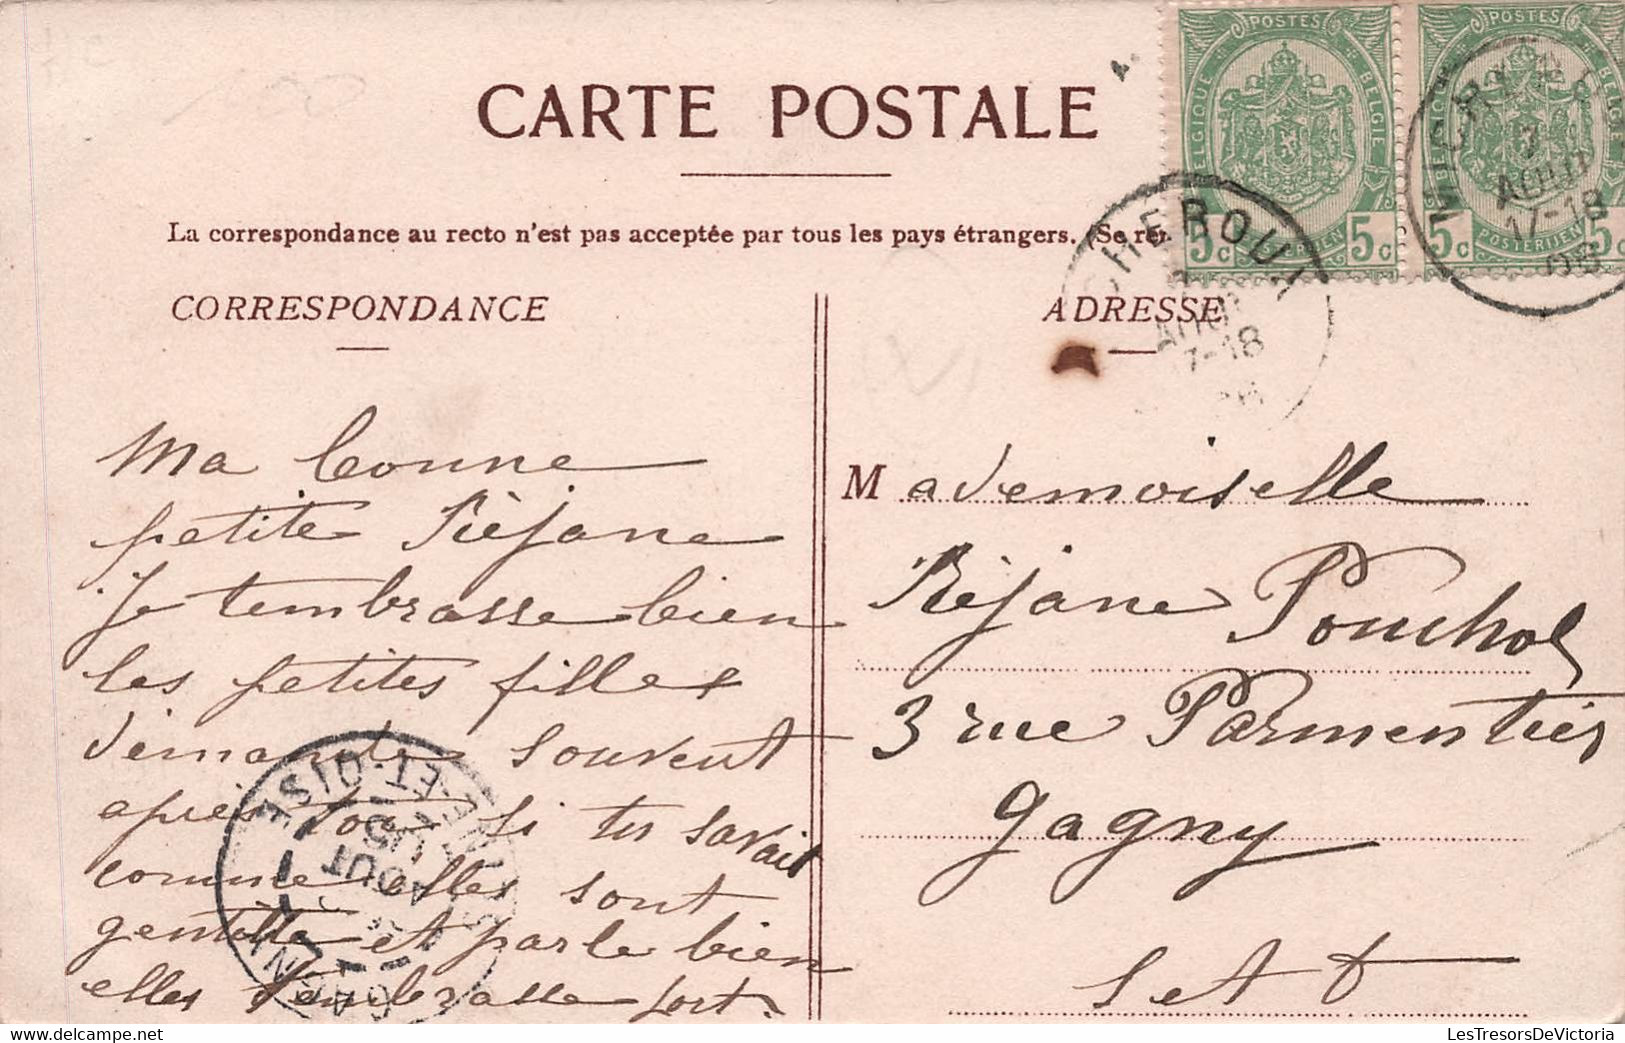 CARTE POSTALE
POSTES
BELGIQUE
BELGIE
5c POSTERIJEN 5c
POSTES
BELGIQUE
BELGIE
5c POSTERIJEN 5c
AOUT
17-18
08
La correspondance au recto n'est pas acceptée par tous les pays étrangers. (Se
CHEROUT
AOUT
7-18
CORRESPONDANCE
ADRESSE
Ma bonne
petite Réjane
Je tembrasse bien
les petites filles
demande souvent
après toi si tu savait
comme elles sont
gentille et parle bien
elles t'embrasse fort.
Mademoiselle
Réjane Pouchol
3 rue Parmentier
Gagny
S et O
SEINE-ET-OISE
AOUT
LesTresorsDeVictoria.com